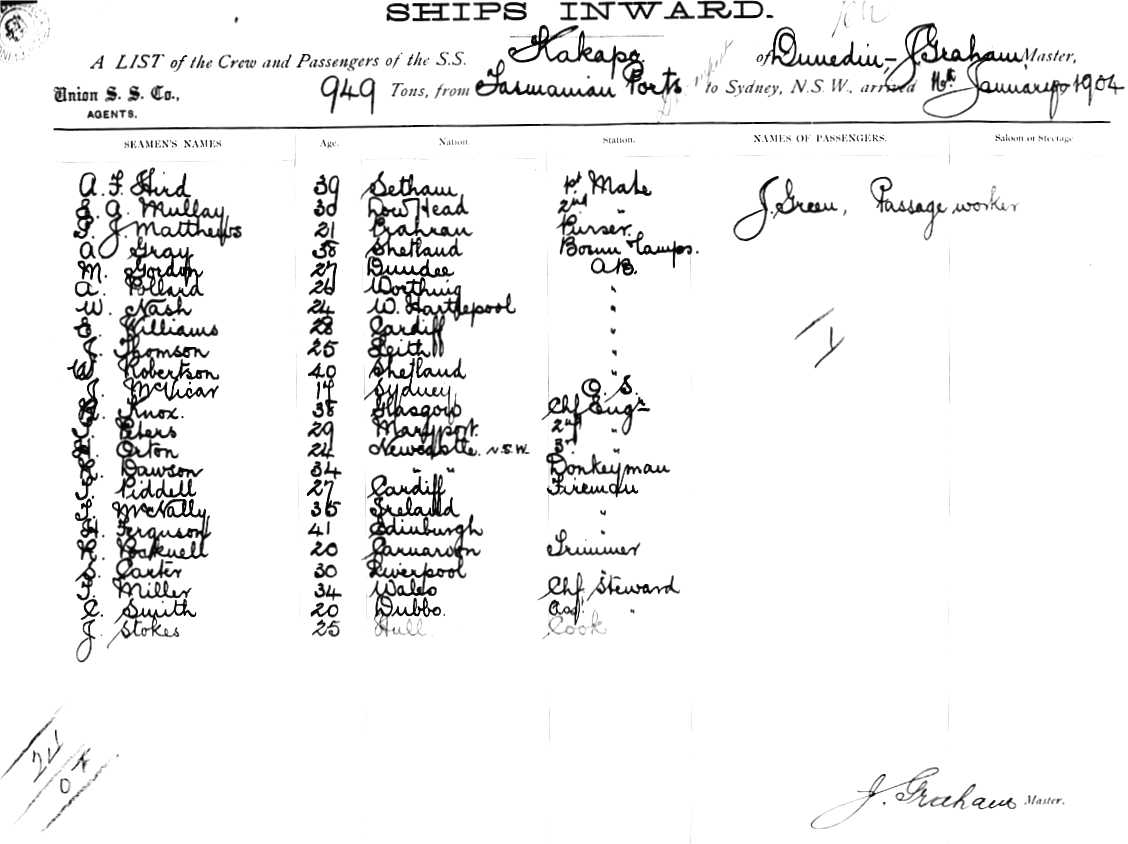 SHIPS INWARD.
A LIST of the Crew and Passengers of the S.S. Kakapo of Dunedin, J Graham Master,
Union S. S. Co., 949 Tons, from Tasmanian Ports to Sydney, N.S.W., arrived January 1904
AGENTS.
SEAMEN'S NAMES Age. Nation. Station. NAMES OF PASSENGERS. Saloon or Steerage
A. F. Hird 39 Setham 1st Mate
E. A. Mullay 30 Low Head 2nd "
J. Matthews 21 Prahran Purser.
J. Green, Passage worker
A Gray 38 Shetland Bosun & Lamps.
M. Gordon 27 Dundee A.B.
A. Pollard 26 Worthing "
W. Nash 24 W. Hartlepool "
E. Williams 28 Cardiff "
J. Thomson 25 Leith "
W. Robertson 40 Shetland "
J. McVicar 17 Sydney O. S.
Knox. 38 Glasgow Chf Engr
Peters 29 Maryport. 2nd "
Orton 24 Newcastle N.S.W. 3rd "
Dawson 34 " " Donkeyman
Piddell 27 Cardiff Fireman
McNally 36 Ireland "
H. Ferguson 41 Edinburgh "
R. 20 Carnarvon Trimmer
S. Carter 30 Liverpool "
F. Miller 34 Wales Chf Steward
C. Smith 20 Dubbo. Asst "
J. Stokes 25 Hull Cook
J. Graham Master.